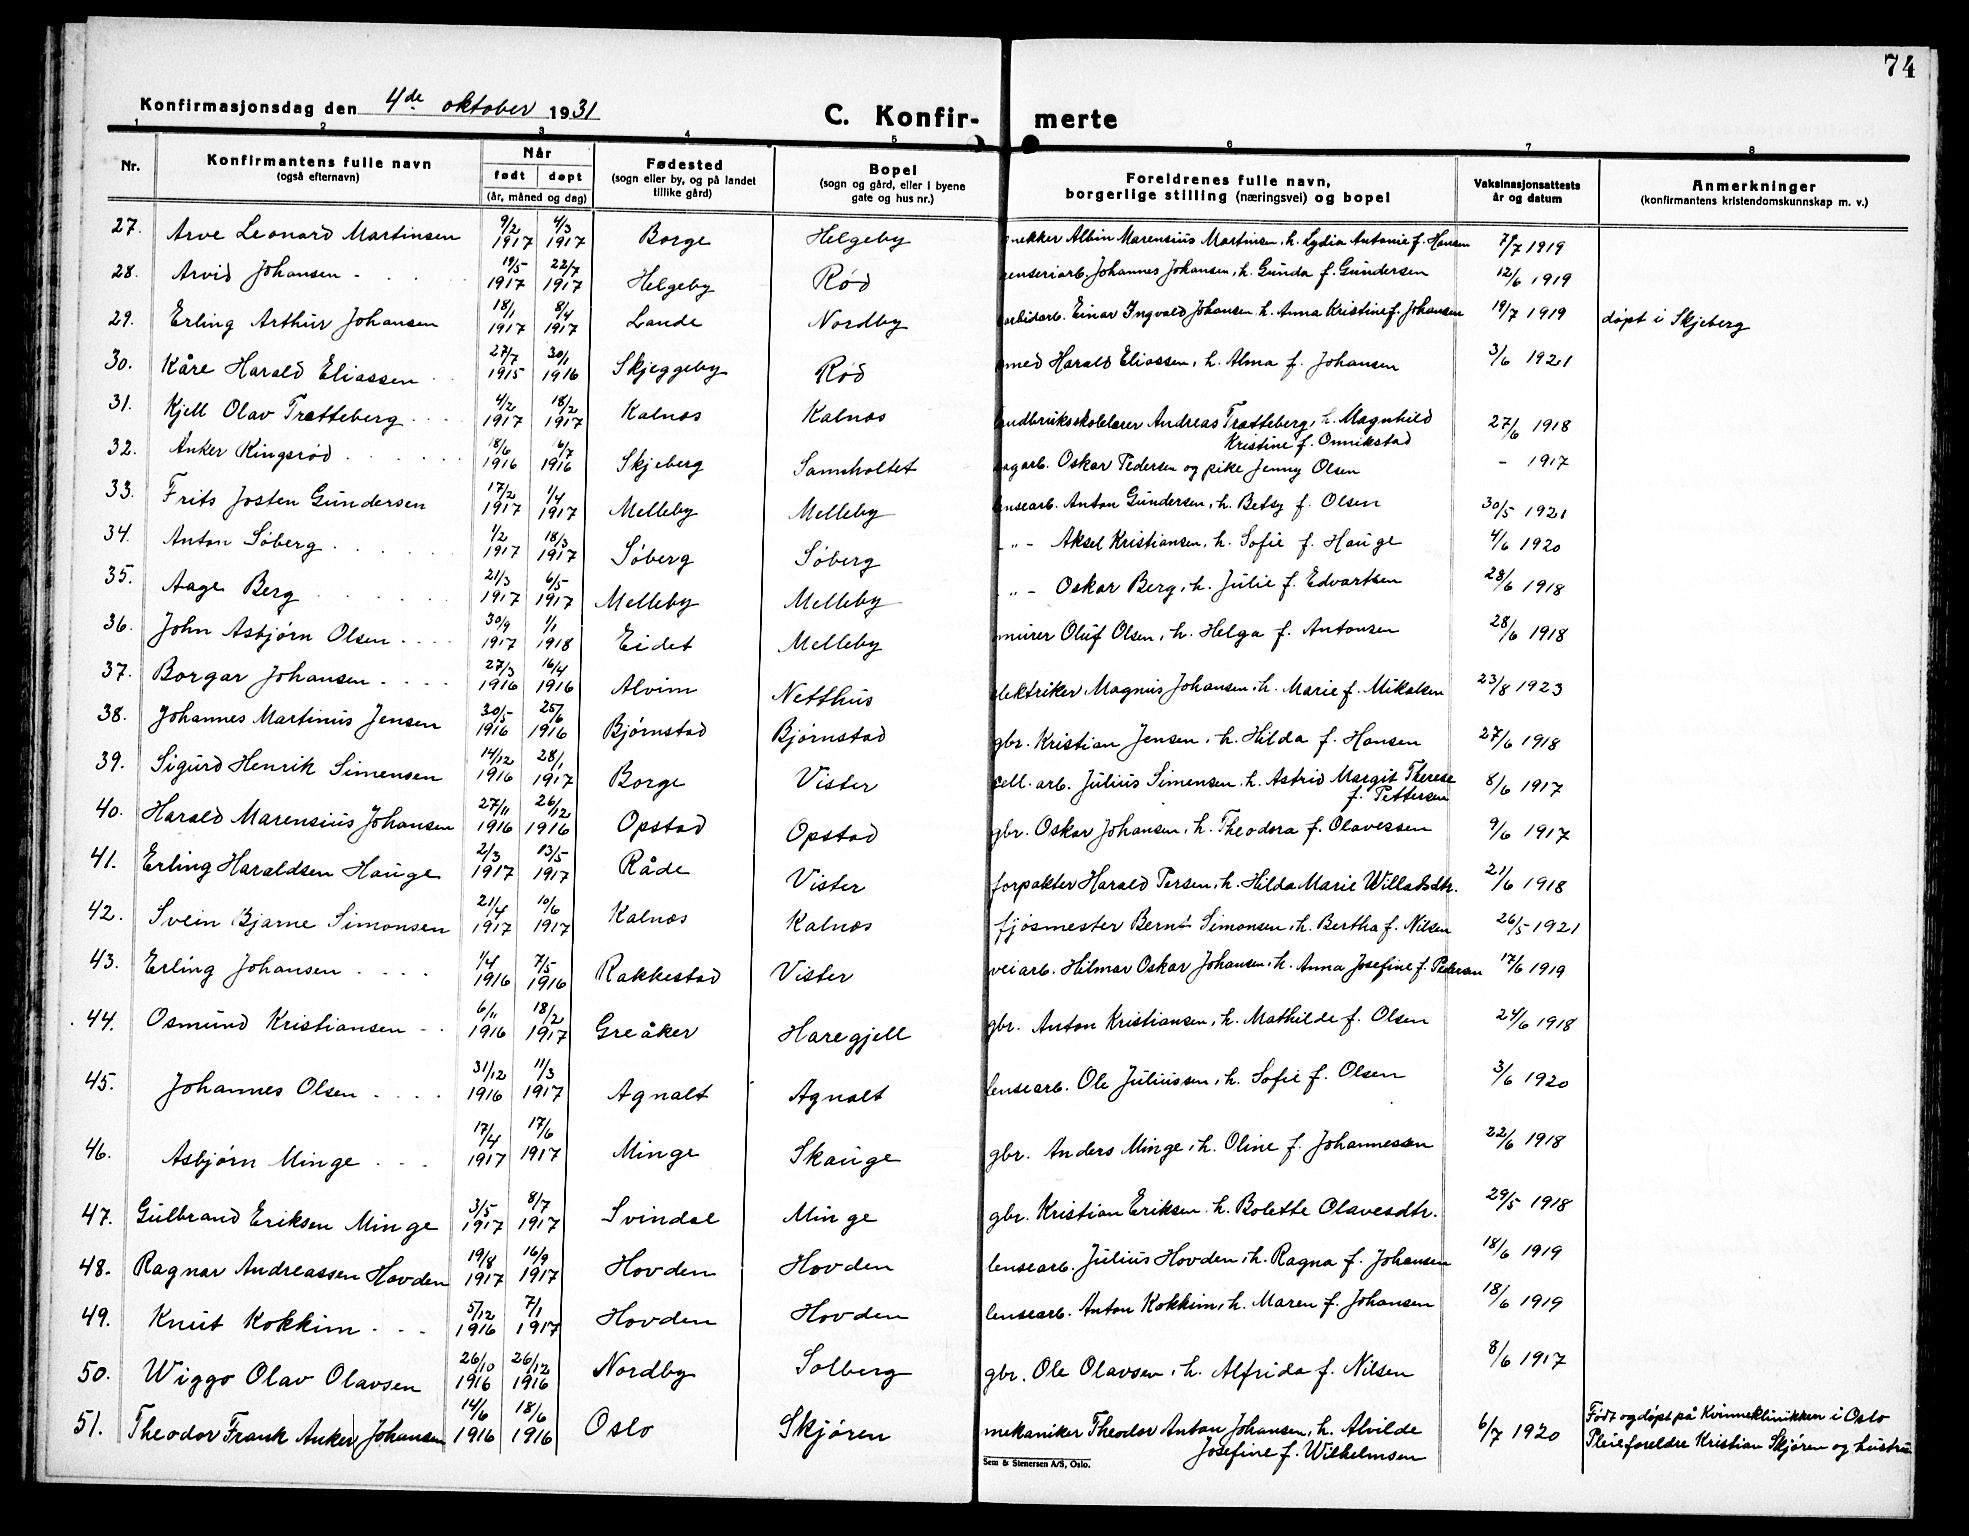 74
Konfirmasjonsdag den 4de oktober 1931
C. Konfir- merte
1 2 3 4 5 6 7 8
Nr. Konfirmantens fulle navn (også efternavn) Når født døpt (år, måned og dag) Fødested (sogn eller by, og på landet tillike gård) Bopel (sogn og gård, eller i byene gate og hus nr.) Foreldrenes fulle navn, borgerlige stilling (næringsvei) og bopel Vaksinasjonsattests år og datum Anmerkninger (konfirmantens kristendomskunnskap m. v.)
27. Arve Leonard Martinsen 9/2 1917 4/3 1917 Borge Helgeby snekker Albin Marensius Martinsen, h. Lydia Antonie f. Hansen 7/7 1919
28. Arvid Johansen 19/5 1917 22/7 1917 Helgeby Rød renseriarb. Johannes Johansen, h. Gunda f. Gundersen 12/6 1919
29. Erling Arthur Johansen 18/1 1917 8/4 1917 Lande Nordby karbidarb. Einar Ingvald Johansen h. Anna Kristine f. Johansen 19/7 1919 døpt i Skjeberg
30. Kåre Harald Eliassen 27/7 1915 30/1 1916 Skjeggeby Rød smed Harald Eliassen, h. Alma f. Johansen 3/6 1921
31. Kjell Olav Trætteberg 4/2 1917 18/2 1917 Kalnes Kalnes landbruksskolelærer Andreas Trætteberg, h. Magnhild
Kristine f. Onnikstad 27/6 1918
32. Anker Kingsrød 18/6 1916 16/7 1916 Skjeberg Samholtet sagarb. Oskar Pedersen og pike Jenny Olsen - 1917
33. Frits Josten Gundersen 17/2 1917 1/4 1917 Melleby Melleby lensearb. Anton Gundersen, h. Betsy f. Olsen 30/5 1921
34. Anton Søberg 1/2 1917 18/3 1917 Søberg Søberg - " - Aksel Kristiansen, h. Sofie f. Hauge 4/6 1920
35. Aage Berg 21/3 1917 6/5 1917 Melleby Melleby - " - Oskar Berg, h. Julie f. Edvartsen 28/6 1918
36. John Asbjørn Olsen 30/9 1917 1/1 1918 Eidet Melleby murer Oluf Olsen, h. Helga f. Antonsen 28/6 1918
37. Borgar Johansen 27/3 1916 16/4 1916 Alvim Netthus elektriker Magnus Johansen, h. Marie f. Mikalsen 23/8 1923
38. Johannes Martinius Jensen 30/5 1916 25/6 1916 Bjørnstad Bjørnstad gbr. Kristian Jensen, h. Hilda f. Hansen 27/6 1918
39. Sigurd Henrik Simensen 14/12 1916 28/1 1917 Borge Vister cell. arb. Julius Simensen h. Astrid Margit Therese
f. Pettersen 8/6 1917
40. Harald Marensius Johansen 27/11 1916 26/12 1916 Opstad Opstad gbr. Oskar Johansen, h. Theodora f. Olavessen 9/6 1917
41. Erling Haraldsen Hauge 2/3 1917 13/5 1917 Råde Vister forpakter Harald Persen, h. Hilda Marie Willadsdtr. 21/6 1918
42. Svein Bjarne Simonsen 21/4 1917 10/6 1917 Kalnes Kalnes fjøsmester Bernt Simonsen, h. Bertha f. Nilsen 26/5 1921
43. Erling Johansen 1/4 1916 7/5 1916 Rakkestad Vister veiarb. Hilmar Oskar Johansen, h. Anna Josefine f. Pedersen 17/6 1919
44. Osmund Kristiansen 6/11 1916 18/2 1917 Greåker Haregjell gbr. Anton Kristiansen, h. Mathilde f. Olsen 24/6 1918
45. Johannes Olsen 31/12 1916 11/3 1917 Agnalt Agnalt lensearb. Ole Juliussen, h. Sofie f. Olsen 3/6 1920
46. Asbjørn Minge 17/4 1917 17/6 1917 Minge Skauge gbr. Anders Minge, h. Oline f. Johannessen 22/6 1918
47. Gulbrand Eriksen Minge 3/5 1917 8/7 1917 Svindal Minge gbr. Kristian Eriksen h. Bolette Olavesdtr. 29/5 1918
48. Ragnar Andreassen Hovden 19/8 1917 16/9 1917 Hovden Hovden lensearb. Julius Hovden, h. Ragna f. Johansen 18/6 1919
49. Knut Kokkim 5/12 1916 7/1 1917 Hovden Hovden lensearb. Anton Kokkim, h. Maren f. Johansen 18/6 1919
50. Wiggo Olav Olavsen 26/10 1916 26/12 1916 Nordby Solberg gbr. Ole Olavsen, h. Alfrida f. Nilsen 8/6 1917
51. Theodor Frank Anker Johansen 14/6 1916 18/6 1916 Oslo Skjøren mekaniker Theodor Anton Johansen, h. Alvilde
Josefine f. Wilhelmsen 6/7 1920 Født og døpt på Kvinneklinikken i Oslo
Pleieforeldre Kristian Skjøren og hustru
Sem & Stenersen A/S, Oslo.